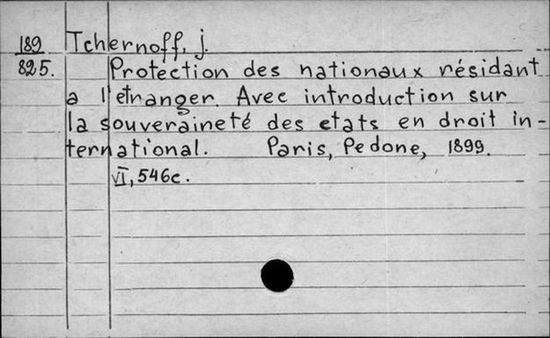 189 Tchernoff, j.
825. Protection des nationaux résidant
a l'etranger. Avec introduction sur
la souveraineté des etats en droit in-
ternational. Paris, Pedone, 1899.
VI, 546c.